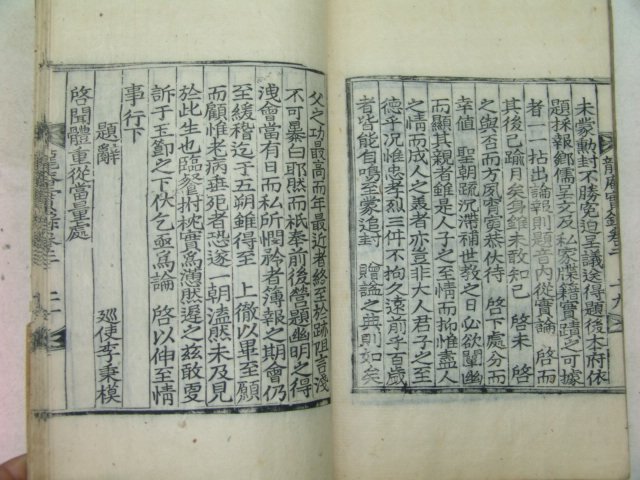 未蒙勳封不勝寃迫呈議送得題後本府依
題採報鄕儒呈文及私家牒籍實蹟之可據
者一一拈出論報則題音內從實論 啓而
其後已踰月矣身雖未敢知已 啓未 啓
之與否而方夙宵寅恭伏待 啓下處分而
幸値 聖朝疏沉滯補世敎之日必欲闡幽
而顯其親者雖是人子之至情而抑惟盡人
之情而成人之美者亦豈非大人君子之至
德乎況惟忠孝烈三件不拘久遠前乎百歲
者皆能自鳴至蒙追封 贈謚之典則如矣
龍庵實錄卷三 十九
父之功最高而年最近者終至於跡阻言淺
不可暴白耶然而祇奉前後營題幽明之得
洩會當有日而私所憫矜者簿報之期會仍
至緩稽迄于五朔雖得至 上徹以畢至願
而顧惟老病垂死者恐遂一朝溘然未及見
於此生也臨餐拊枕實爲懣然遲之玆敢更
訴于玉節之下伏乞亟爲論 啓以伸至情
事行下
題辭 巡使李秉模
啓聞體重從當量處
龍庵實錄卷三 二十